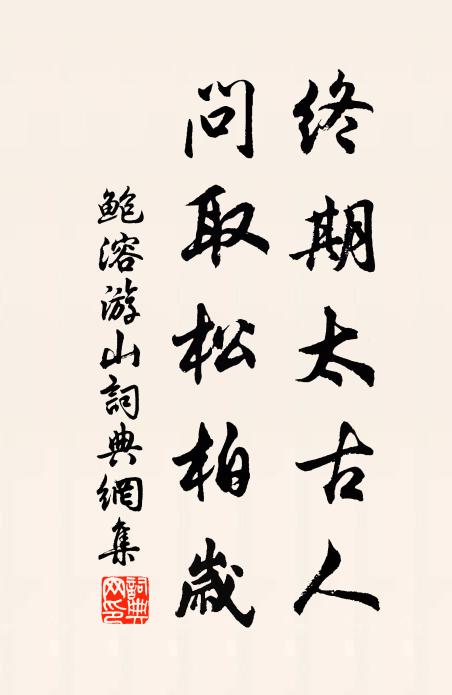 終期太古人
問取松柏歲
鮑溶游山詞典網集
詞典网印